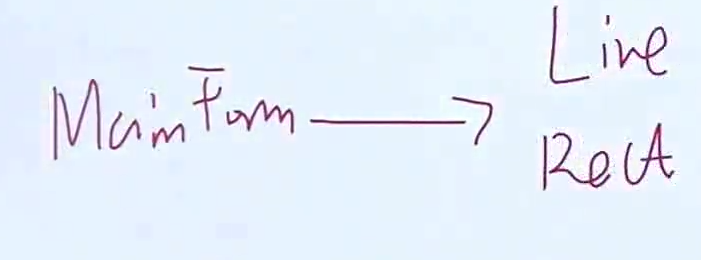 MainForm
Line
Rect